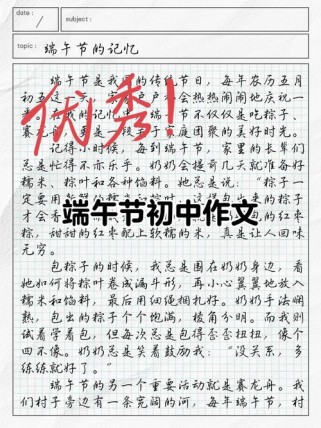 date :
subject:
topic: 端午节的记忆
端午节是我国的传统节日，每年农历五月
初五这一天，家家户户都会热热闹闹地庆祝一
在我的记忆中，端午节不仅仅是吃粽子、
赛龙舟，更是一段关于家庭团聚的美好时光。
记得小时候，每到端午节，家里的长辈们
总是忙得不亦乐乎。奶奶会提前几天就准备好
糯米、粽叶和各种馅料。她总是说：“粽子一
定要用
才会香
的红枣
粽，甜甜的红枣配上软糯的米，真是让人回味
无穷。
包粽子的时候，我总是围在奶奶身边，看
她如何将粽叶卷成漏斗形，再小心翼翼地放入
糯米和馅料，最后用细绳捆扎好。奶奶手法娴
熟，包出的粽子个个饱满，棱角分明。而我则
试着学着包，但每次总是包得歪歪扭扭，像个
四不像。奶奶总是笑着鼓励我：“没关系，多
练练就好了。”
端午节的另一个重要活动就是赛龙舟。我
们村子旁边有一条宽阔的河，每年端午节，村
优秀！
端午节初中作文